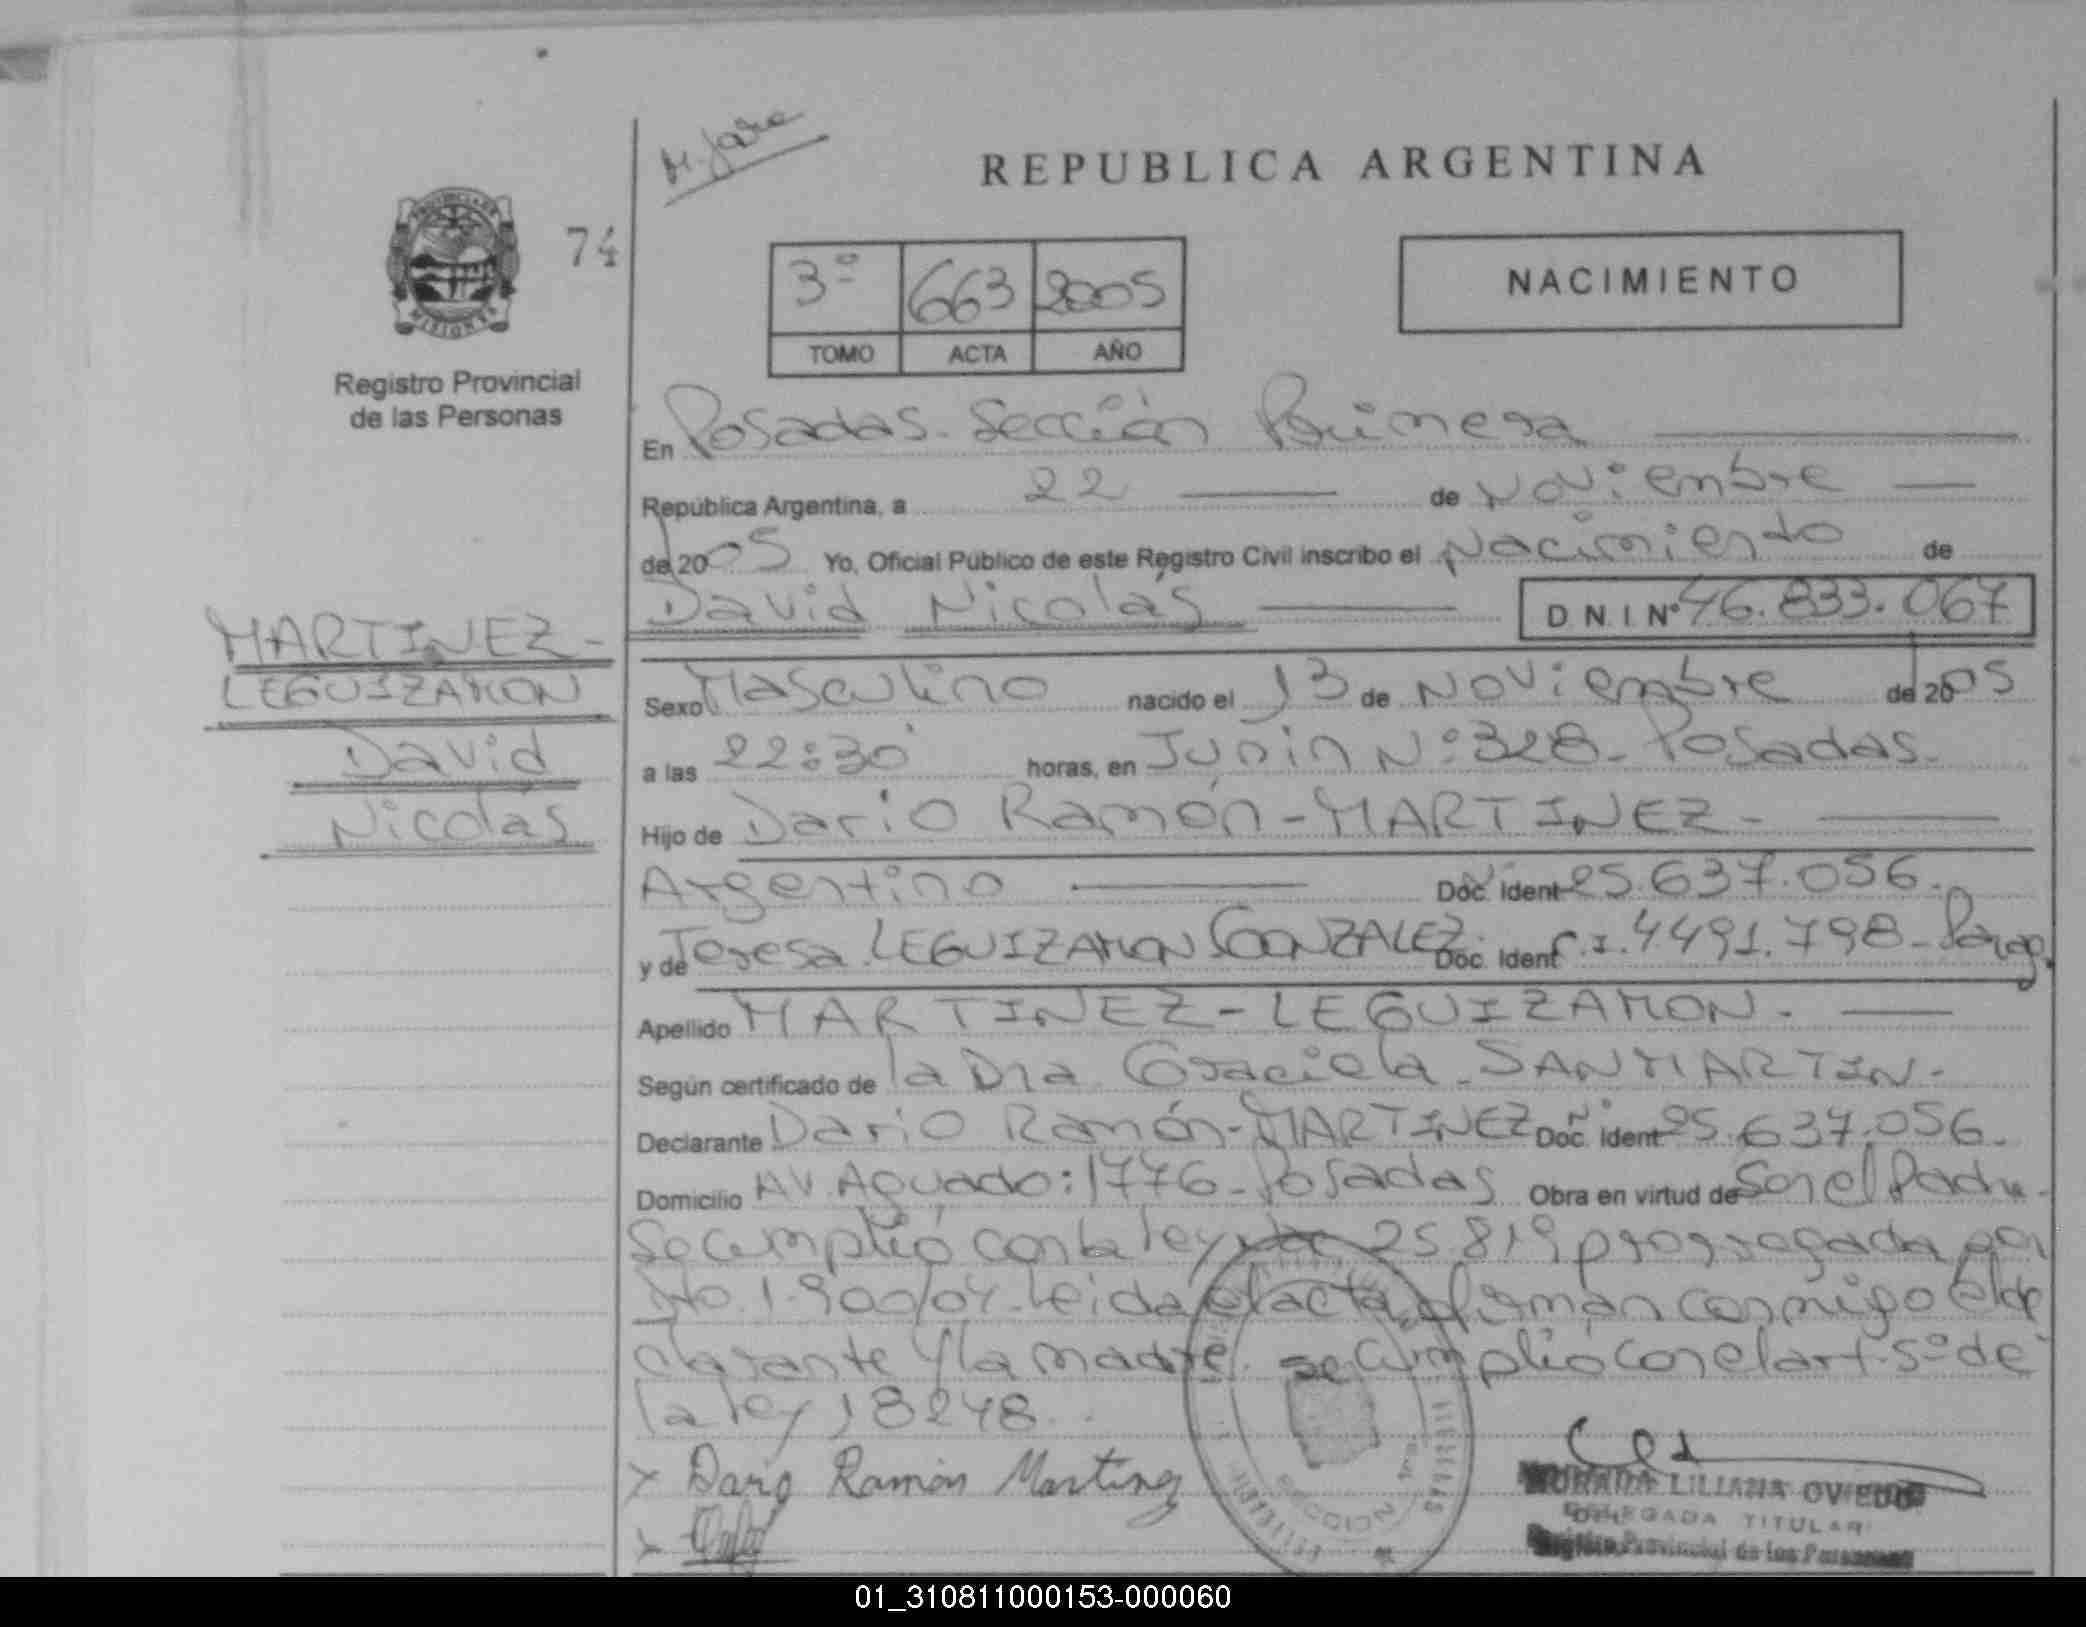 M. Jose
REPUBLICA ARGENTINA
PROVINCIA DE
MISIONES
74
Registro Provincial
de las Personas
3º 663 2005
TOMO ACTA AÑO
NACIMIENTO
En Posadas. Sección Primera
República Argentina, a 22 de Noviembre
de 2005 Yo, Oficial Público de este Registro Civil inscribo el Nacimiento de
David Nicolás D N I Nº 46.833.067
MARTINEZ-
LEGUIZAMON
David
Nicolás
Sexo Masculino nacido el 13 de Noviembre de 2005
a las 22:30 horas, en Junin Nº 328- Posadas.
Hijo de Dario Ramón-MARTINEZ-
Argentino Doc. Ident 25.637.056.
y de Teresa LEGUIZAMON GONZALEZ Doc. Ident C.I. 4491.798- Parag.
Apellido MARTINEZ-LEGUIZAMON.
Según certificado de la Dra Graciela SANMARTIN.
Declarante Dario Ramón-MARTINEZ Doc. Ident 25.637.056.
Domicilio AV. Aguado: 1776- Posadas Obra en virtud de Ser el Padre.
Se cumplió con la ley 25.819 prorrogada por
Dto. 1.900/04. Leida el acta, firman conmigo el de
clarante y la madre. se cumplió con el art. 5º de
la ley 18248.
x Dario Ramón Martinez
x
SECCION 1ra
LILIANA OVIEDO
DELEGADA TITULAR
Registro Provincial de las Personas
01_310811000153-000060